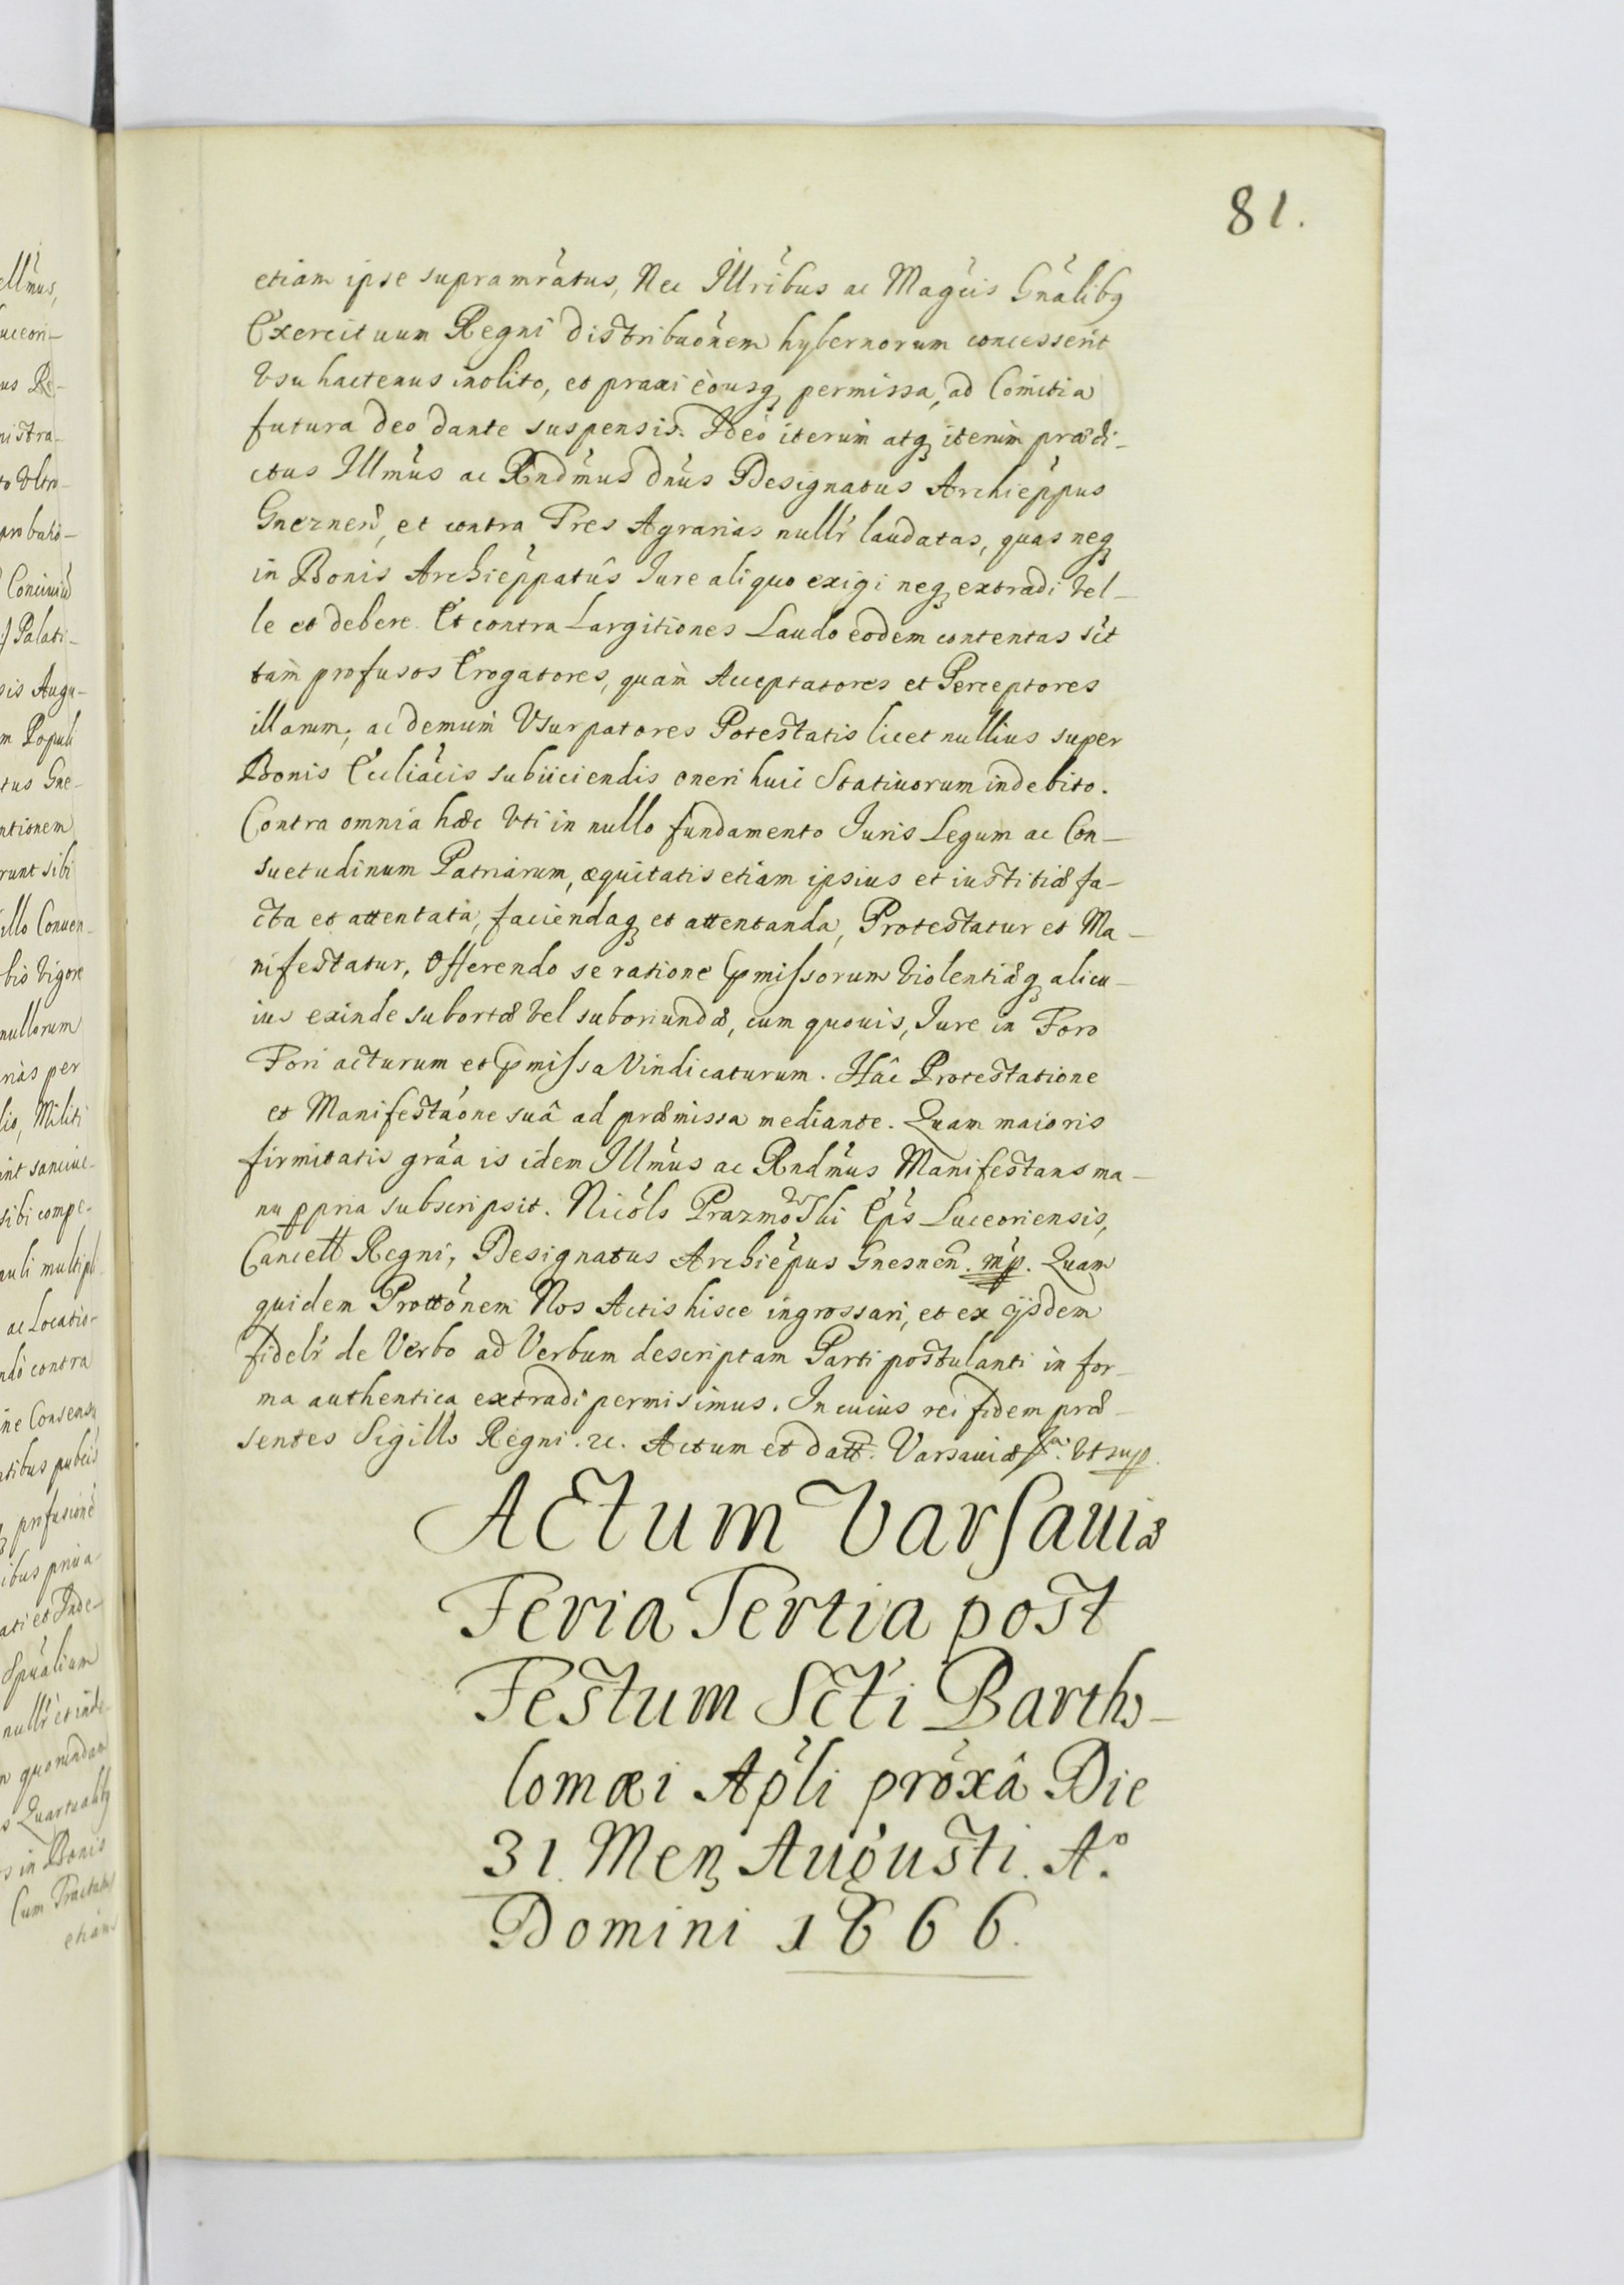 81.
etiam ipse supramratus, Nec Illribus ac Magcis Gnalibq
Exercituum Regni distribuonem hybernorum concesserit
Vsu hactenus inolito, et praxi eousq permissa, ad Comitia
futura deo dante suspensis. Ideo iterum atq iterum prædi-
ctus Illmus ac Rndmus dnus Designatus Archieppus
Gneznen, et contra Tres Agrarias nullr laudatas, quas neq
in Bonis Archieppatûs Jure aliquo exigi neq extradi vel-
le et debere. Et contra Largitiones Laudo eodem contentas sit
tam profusos Erogatores, quam Acceptatores et Perceptores
illarum; ac demum Vsurpatores Potestatis licet nullius super
Bonis Eccliacis subiiciendis oneri huic Statiuorum indebito.
Contra omnia hæc vti in nullo fundamento Juris Legum ac Con-
suetudinum Patriarum, æquitatis etiam ipsius et iustitiæ fa-
cta et attentata, faciendaq et attentanda, Protestatur et Ma-
nifestatur, Offerendo se ratione pmissorum violentiæq alicu-
ius exinde subortæ vel suboriundæ, cum quouis, Jure in Foro
Fori acturum et pmissa Vindicaturum. Hâc Protestatione
et Manifestaone suâ ad præmissa mediante. Quam maioris
firmitatis graa is idem Illmus ac Rndmus Manifestans ma-
nu ppria subscripsit. Nicols Prazmowski Eps Luceoriensis,
Cancell Regni, Designatus Archiepus Gnesnen. mp. Quam
quidem Prottonem Nos Actis hisce ingrossari, et ex ijsdem
fidelr de Verbo ad Verbum descriptam Parti postulanti in for-
ma authentica extradi permisimus. In cuius rei fidem præ-
sentes Sigillo Regni. &c. Actum et datt. Varsauiæ Fa. vt sup.
Actum Varsauiæ
Feria Tertia post
Festum Scti Bartho-
lomæi Apli proxâ Die
31. Men Augusti. Ao.
Domini 1666.